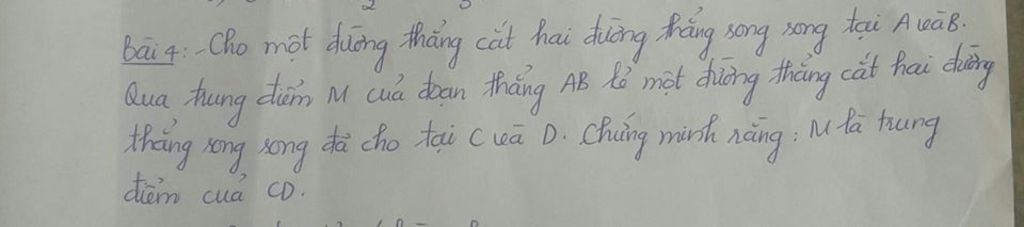 Bài 4: - Cho một đường thẳng cắt hai đường thẳng song song tại A và B.
Qua trung điểm M của đoạn thẳng AB kẻ một đường thẳng cắt hai đường
thẳng song song đã cho tại C và D. Chứng minh rằng: M là trung
điểm của CD.